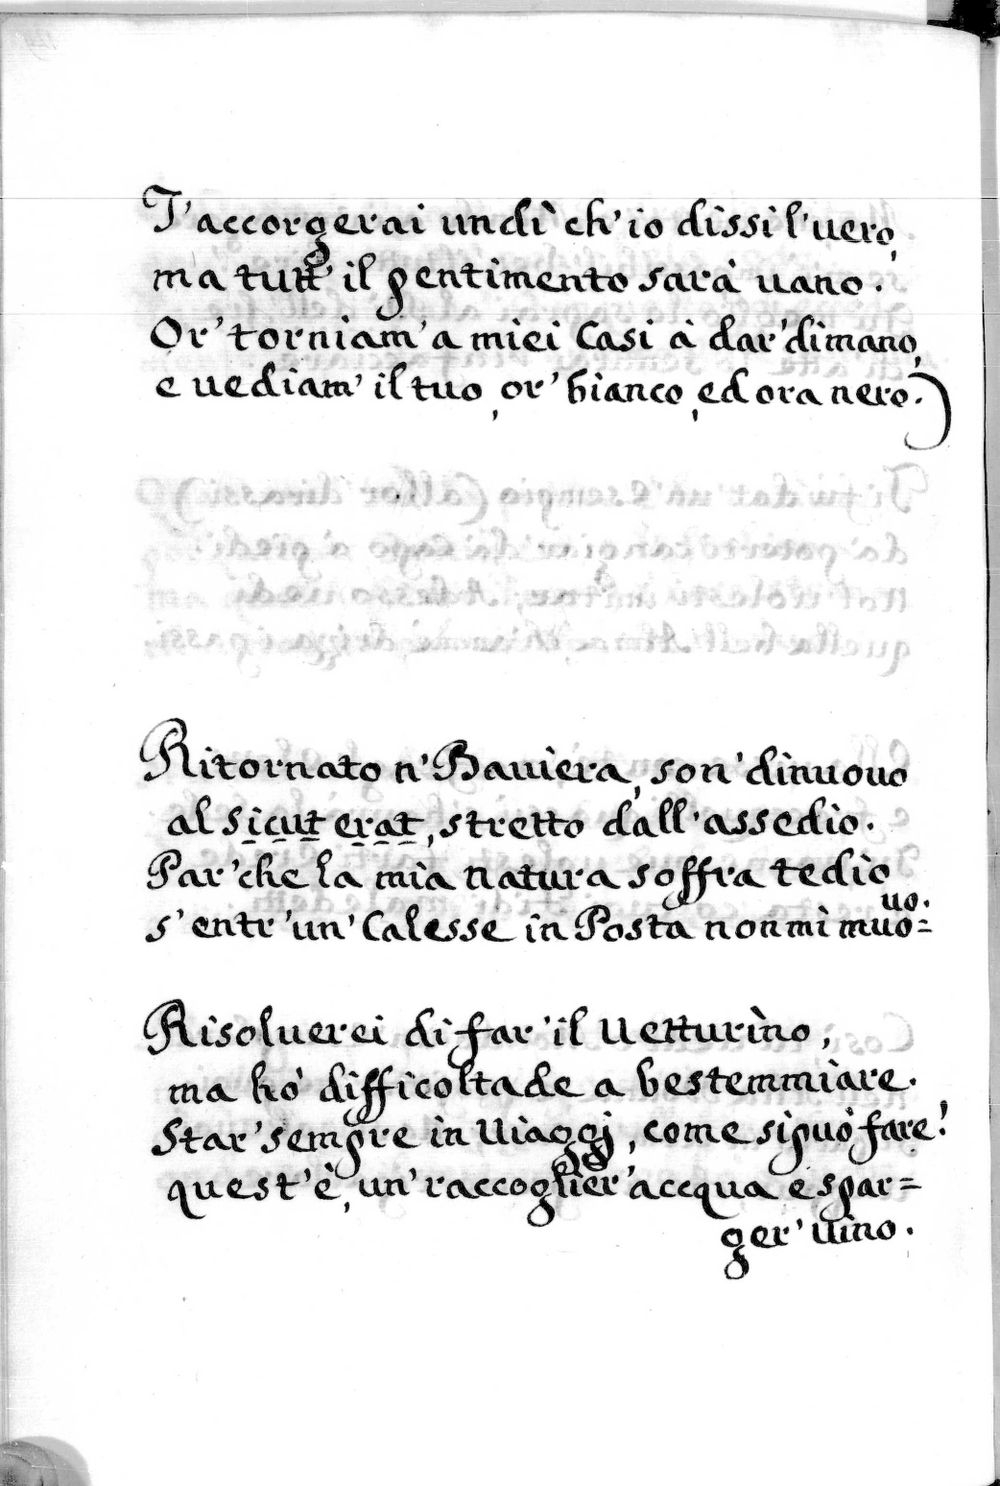 T'accorgerai un dì ch'io dissi l'uero,
ma tutt' il pentimento sarà uano.
Or' torniam' a miei Casi à dar' di mano,
e uediam' il tuo, or' bianco, ed ora nero.)
Ritornato n' Bauiera, son' dinuouo
al sicut erat, stretto dall' assedio.
Par' che la mia natura soffra tedio
s' entr' un' Calesse in Posta non mi muo=
uo.
Risoluerei di far' il Uetturino,
ma hò difficoltade a bestemmiare.
Star' sempre in Uiaggj, come si può fare!
quest' è, un' raccoglier' accqua e spar=
ger' uino.